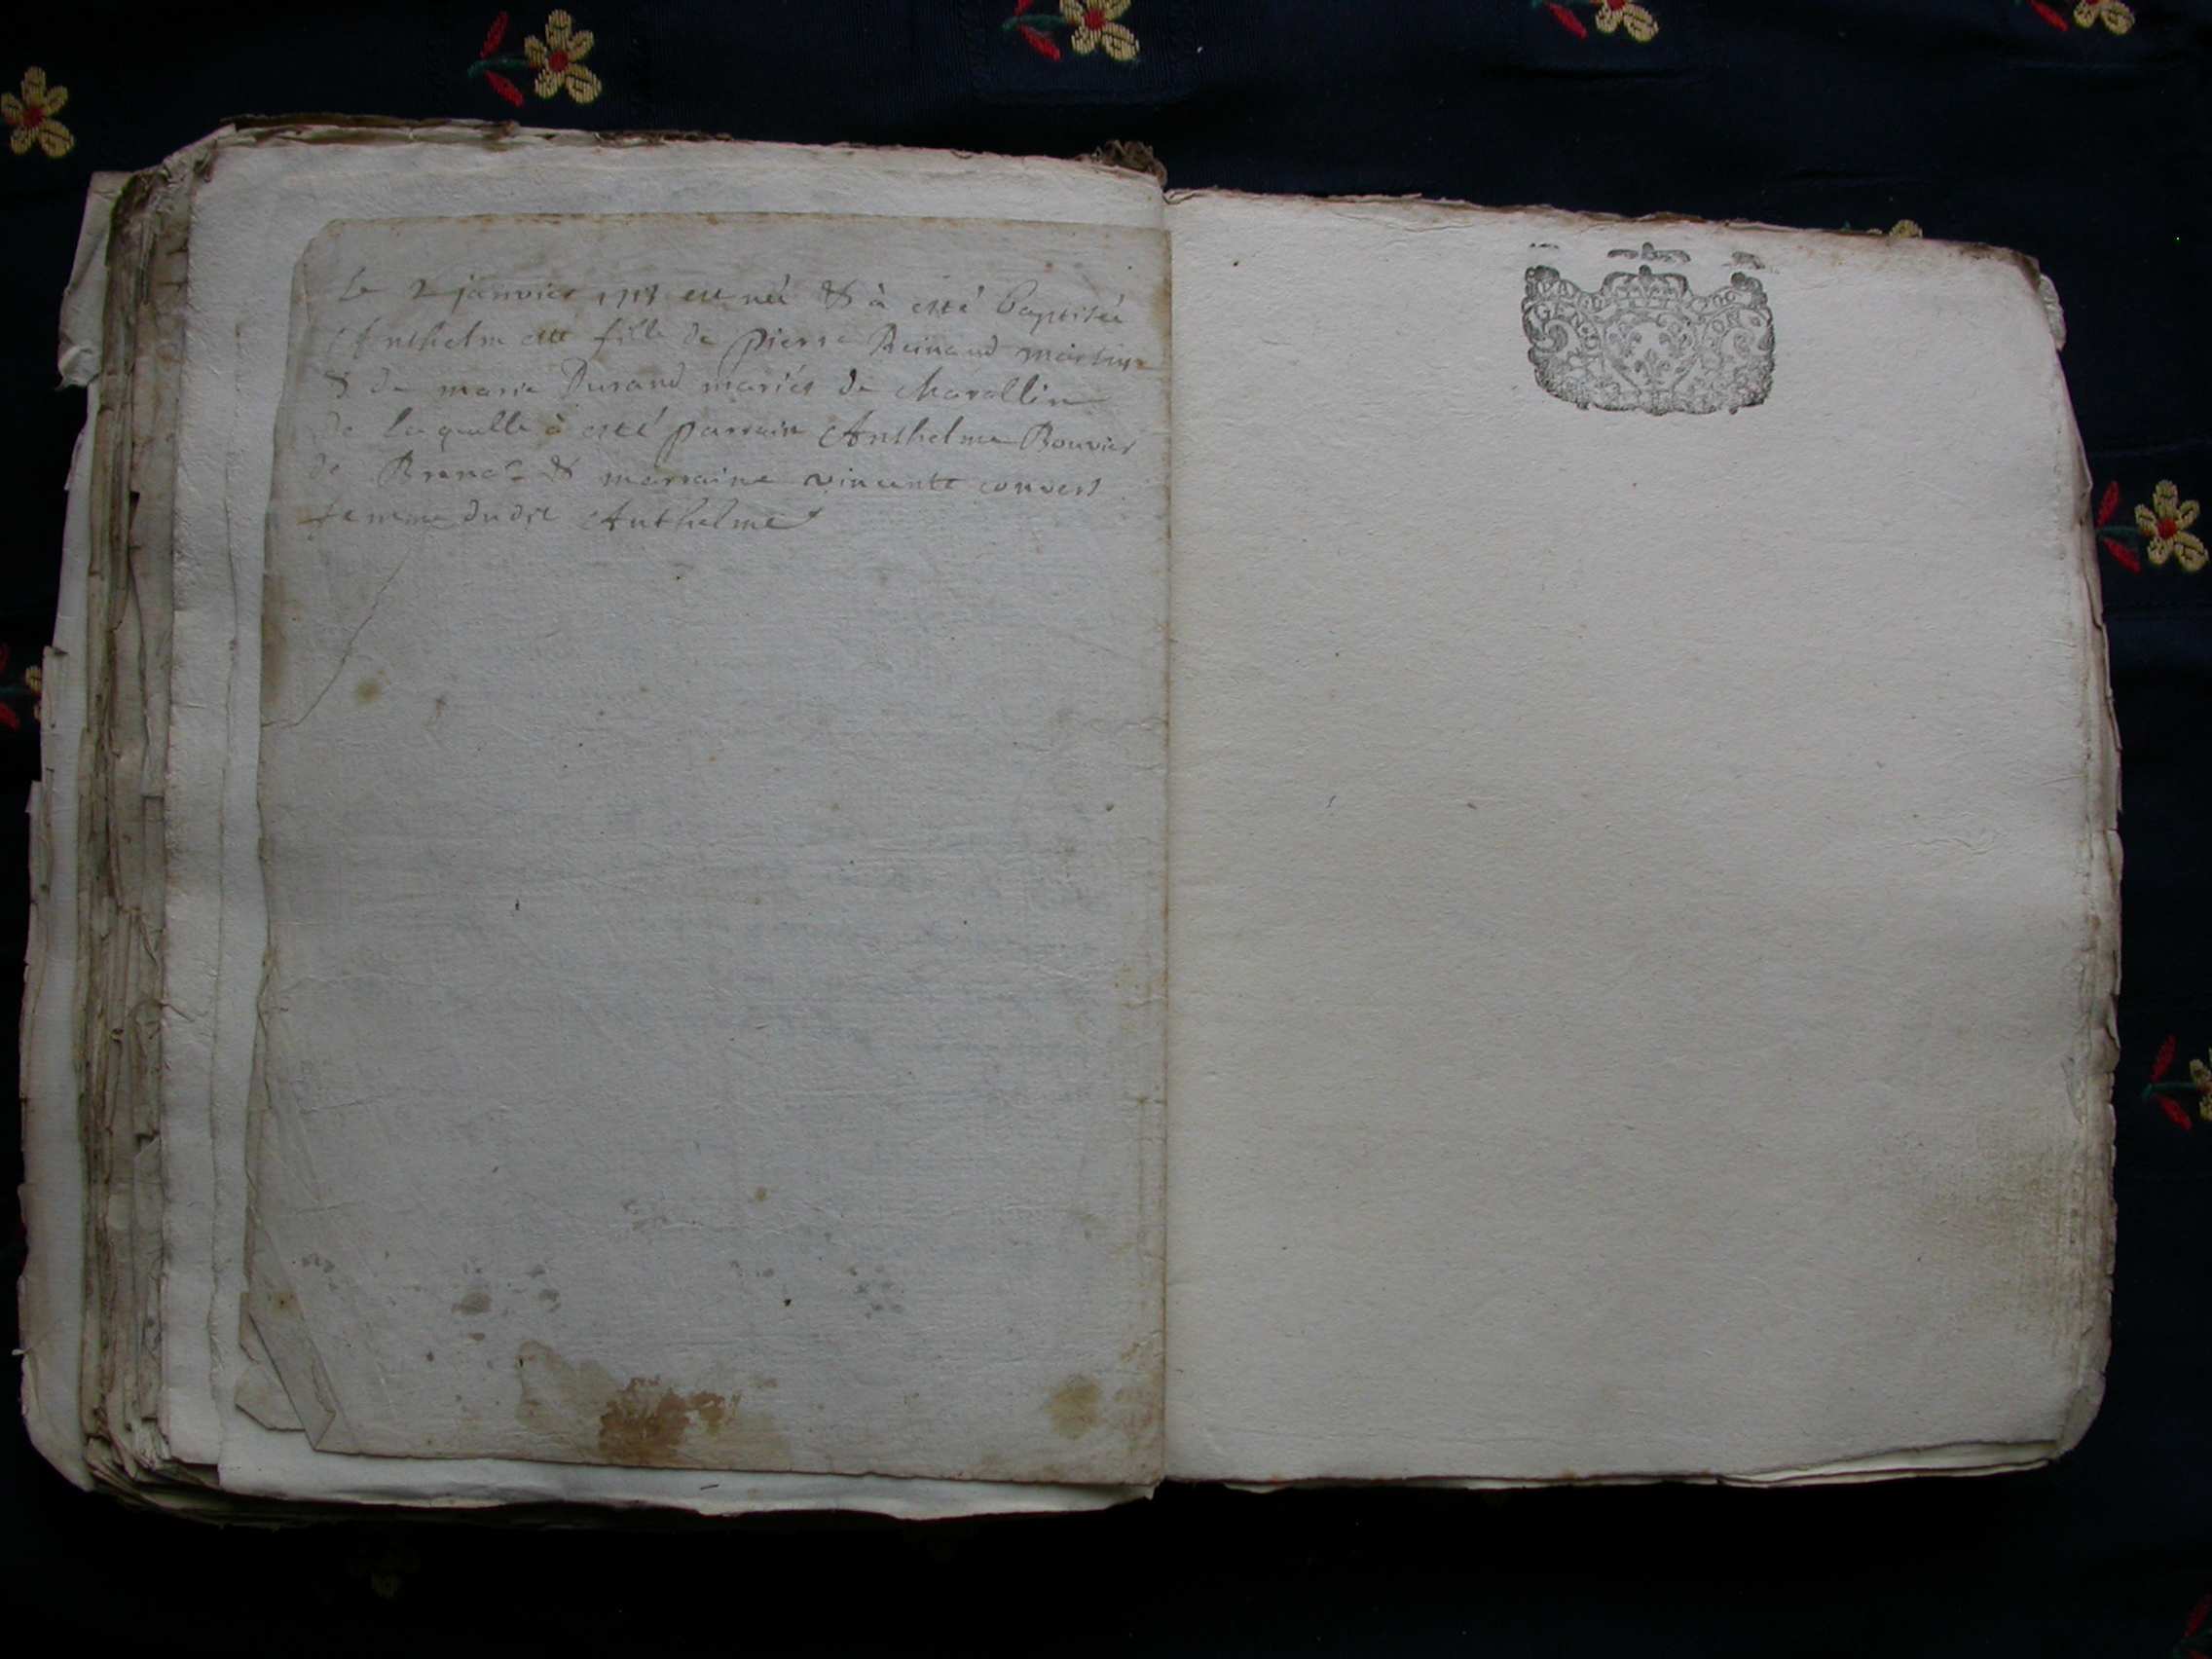 Le 2 janvier est née & à esté baptisée
Anthelmette fille de pierre Reinaud
& de marie Durand mariés de charollin
de laquelle à esté parrain Anthelme Bouvier
de & marraine vincente convert
femme dudit Anthelme
GEN ON